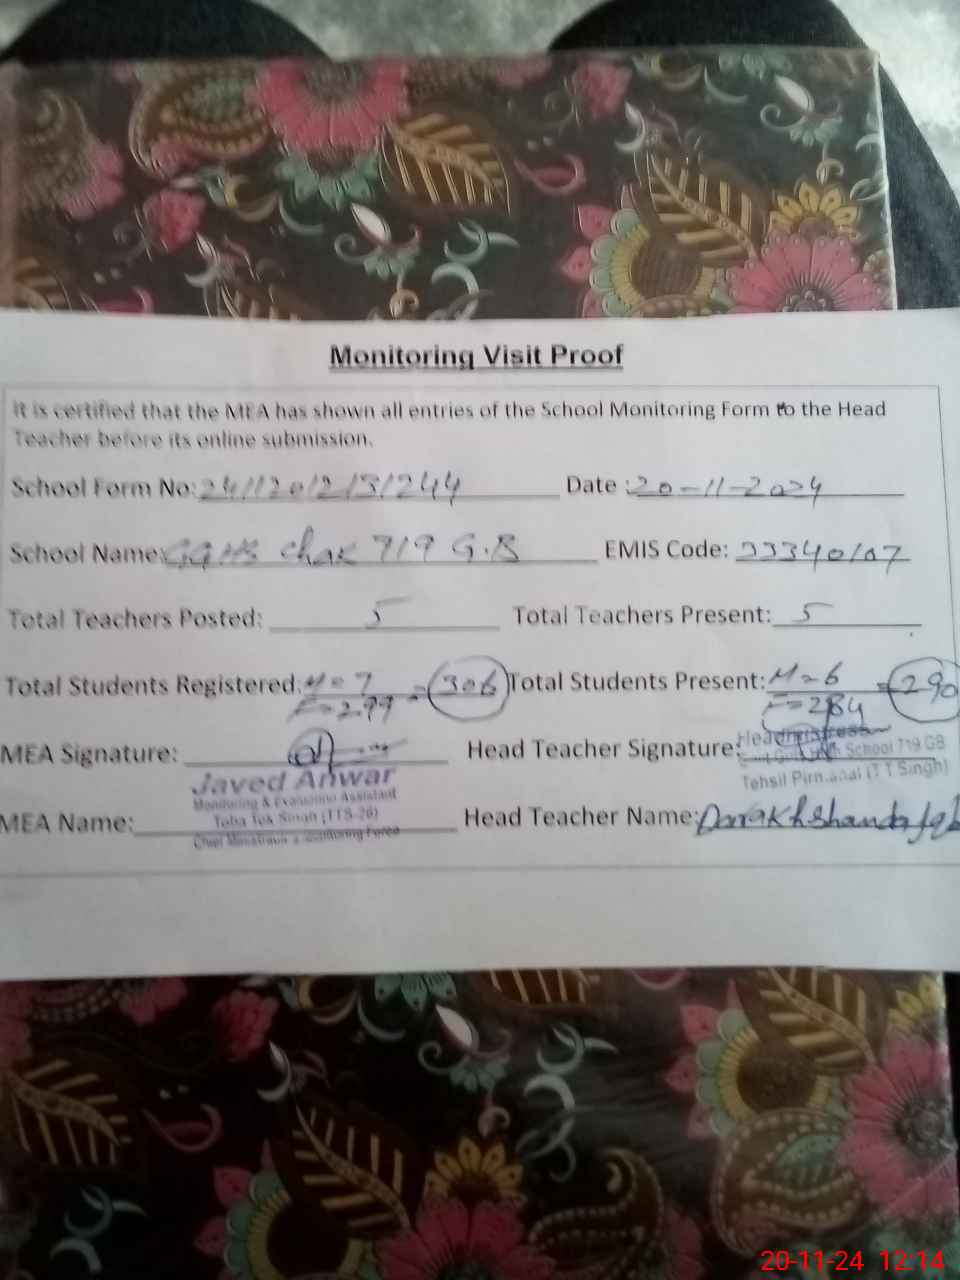 Monitoring Visit Proof
It is certified that the MEA has shown all entries of the School Monitoring Form to the Head
Teacher before its online submission.
School Form No: Date : 20-11-2024
School Name: GGHS chak 719 G.B EMIS Code: 33340107
Total Teachers Posted: 5 Total Teachers Present: 5
Total Students Registered: M=7 = 306 Total Students Present: M=6 = 290
F=299 F=284
MEA Signature: Head Teacher Signature: Headmistress
School 719 GB
Javed Anwar Tehsil (T T Singh)
Monitoring & Evaluation Assistant
MEA Name: Toba Tek Singh (TTS-26) Head Teacher Name: Darakhshanda
Monitoring Force
20-11-24 12:14